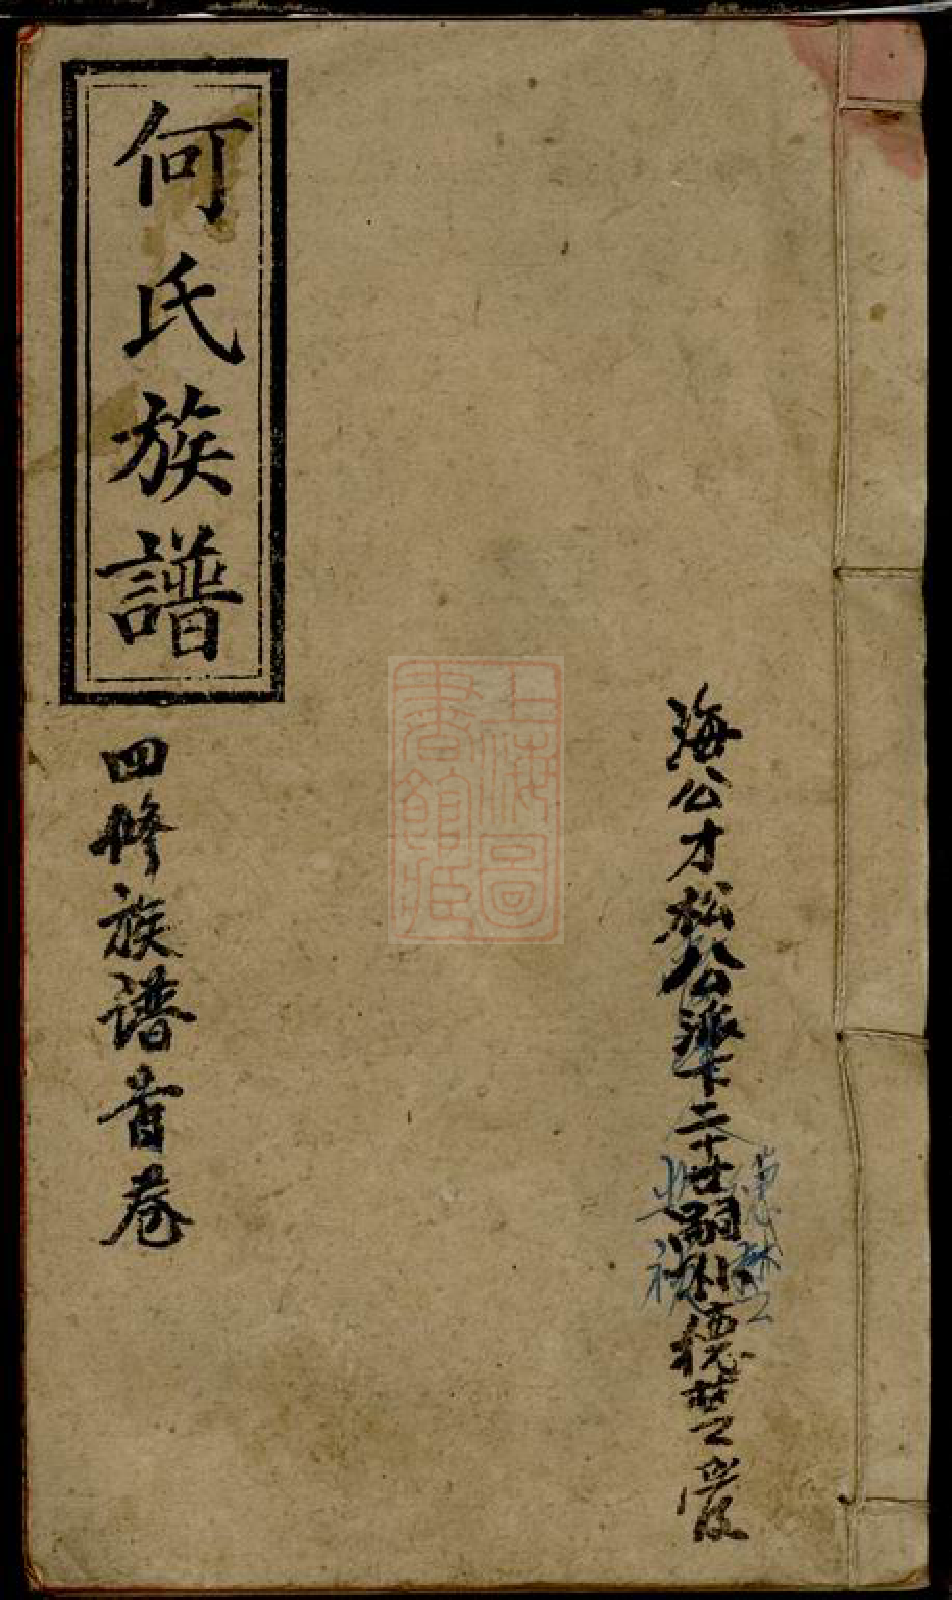 海公才松公派下二十廿嗣孫德楚之房
何氏族譜
四修族譜首卷
上海圖書館藏